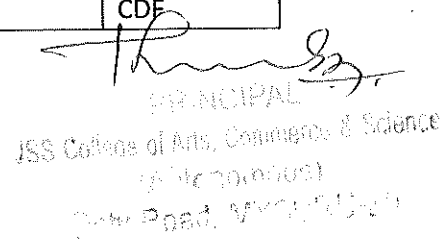 CDF
PRINCIPAL
JSS College of Arts, Commerce & Science
(Autonomous)
Road,